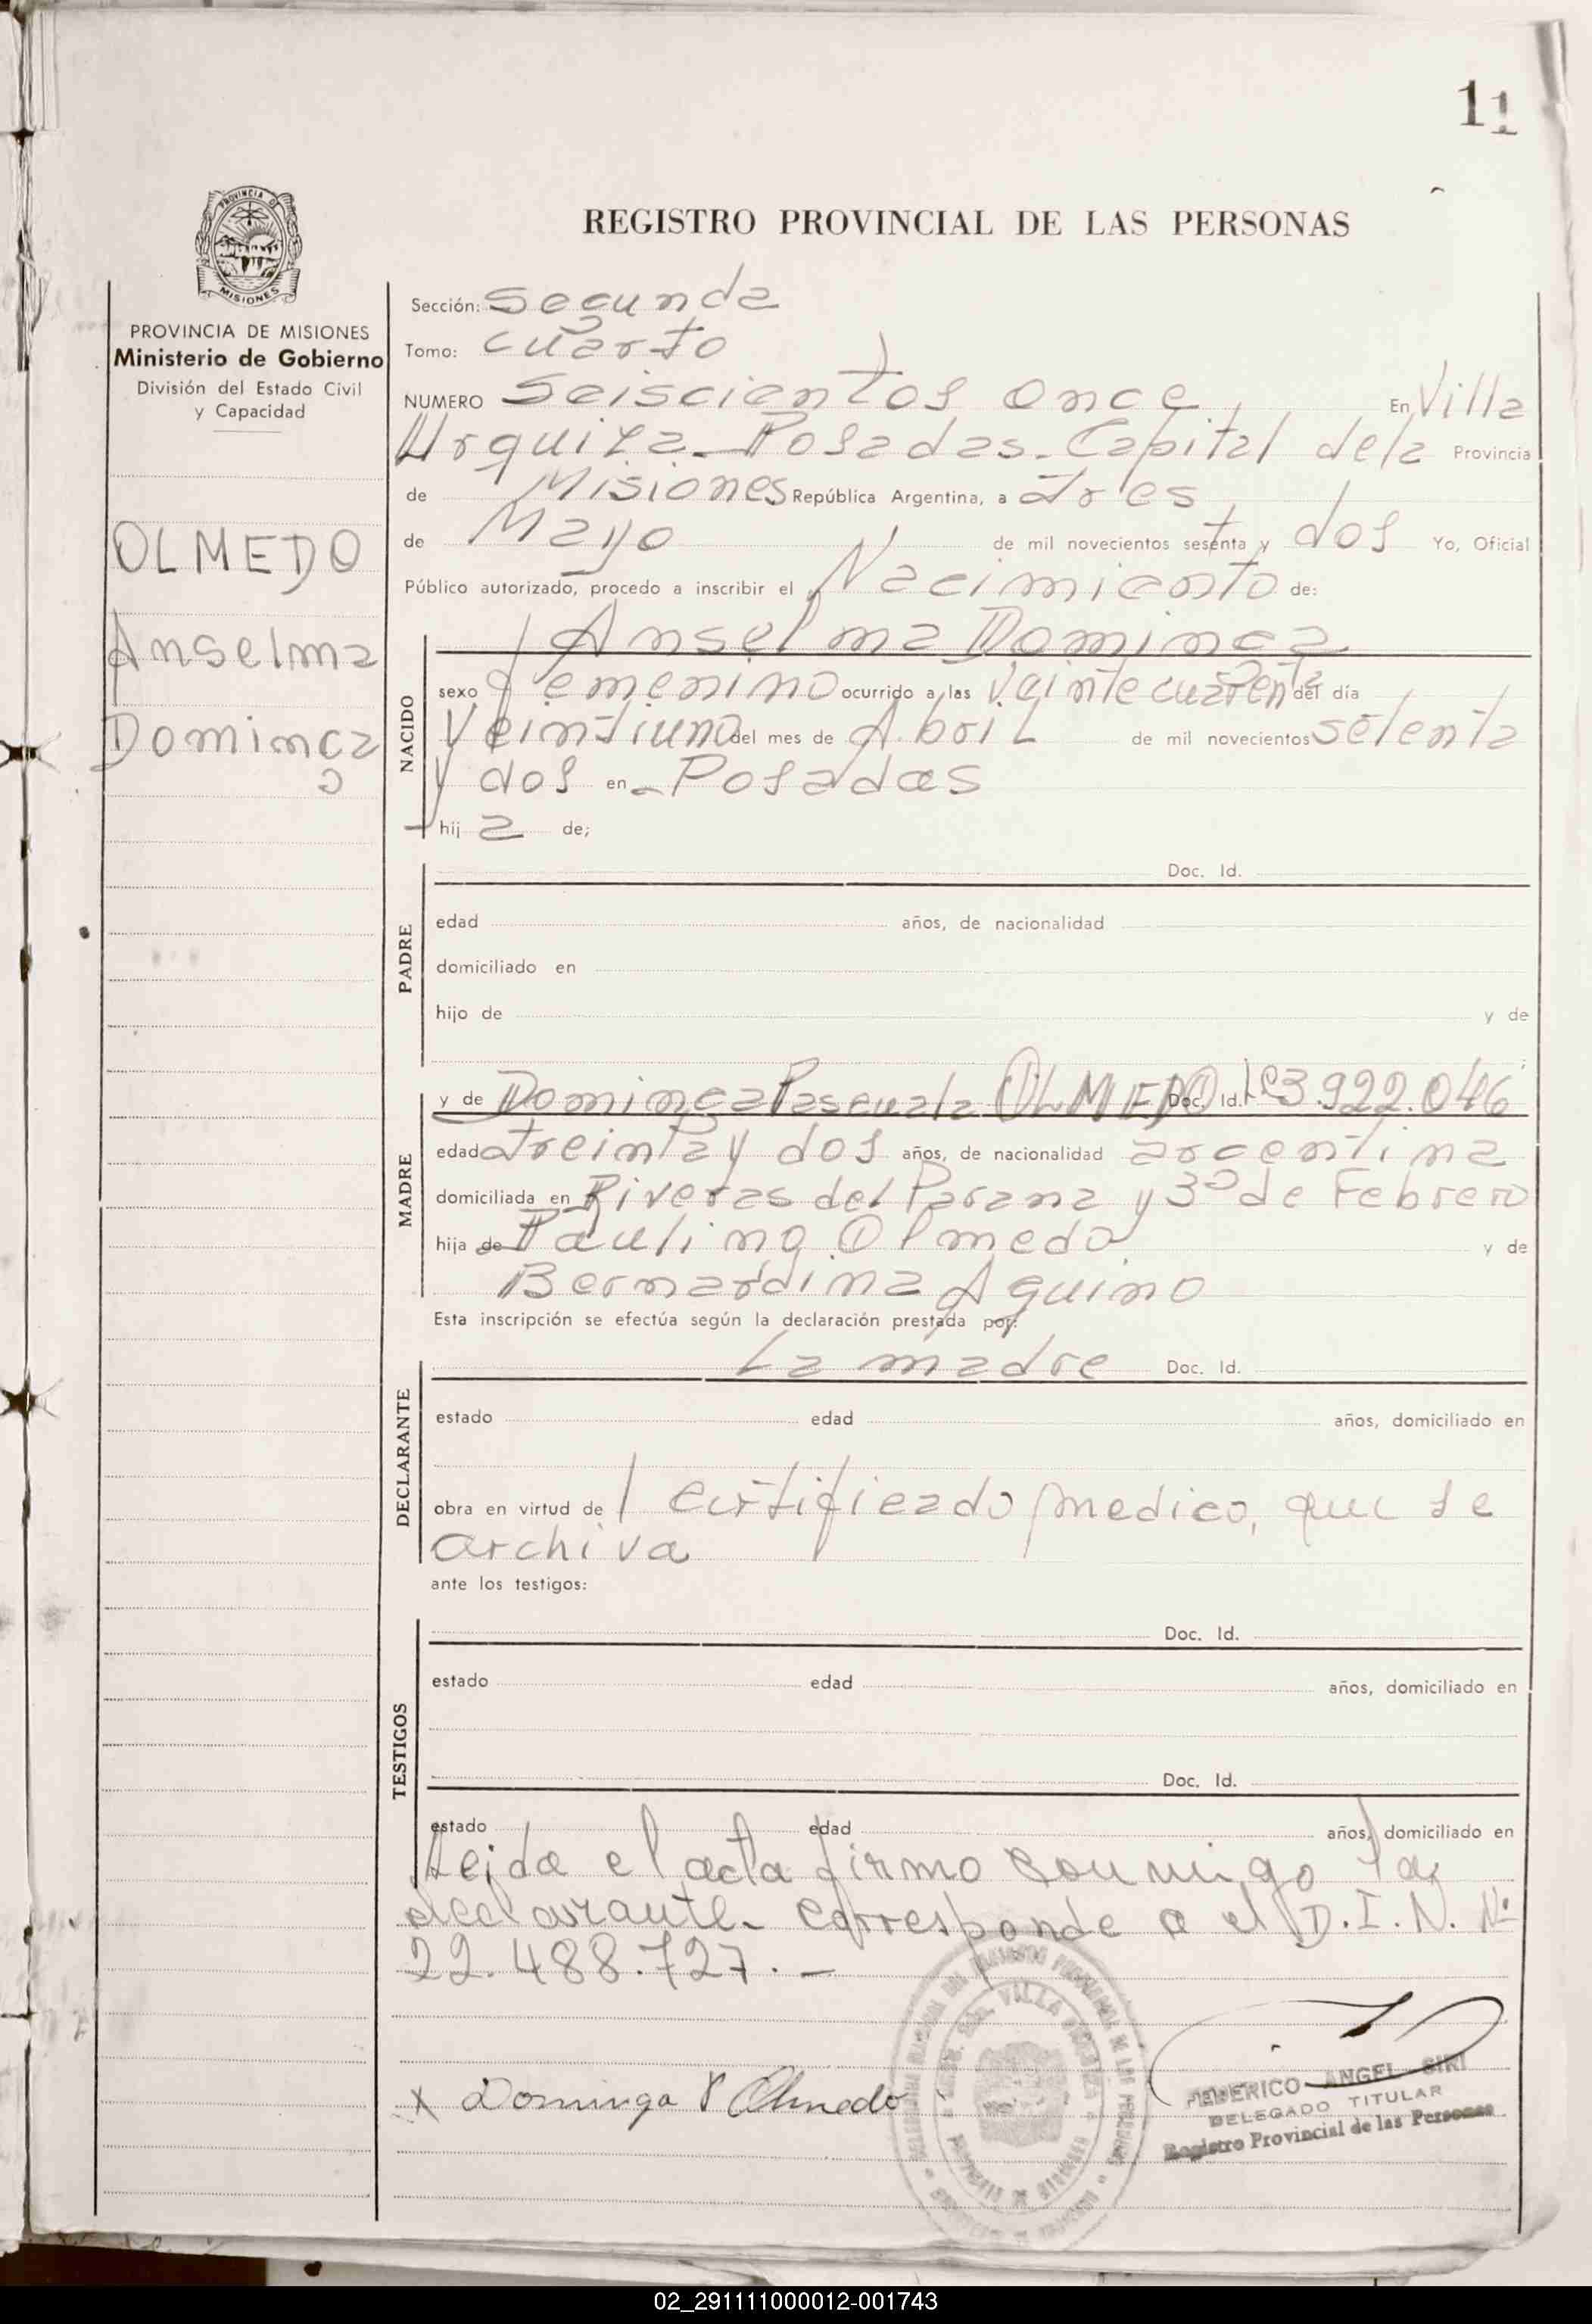 11
REGISTRO PROVINCIAL DE LAS PERSONAS
PROVINCIA DE MISIONES
Ministerio de Gobierno
División del Estado Civil
y Capacidad
OLMEDO
Anselma
Dominga
Sección: Segunda
Tomo: Cuarto
NUMERO Seiscientos once, En Villa
Urquiza - Posadas - Capital de la Provincia
de Misiones República Argentina, a tres
de Mayo de mil novecientos sesenta y dos Yo, Oficial
Público autorizado, procedo a inscribir el Nacimiento de:
NACIDO
Anselma Dominga
sexo femenino ocurrido a las veinte cuarenta del día
Veintiuno del mes de Abril de mil novecientos setenta
y dos en - Posadas
hij a de;
PADRE
Doc. Id.
edad años, de nacionalidad
domiciliado en
hijo de y de
MADRE
y de Dominga Pascuala OLMEDO Doc. Id. LC 3.922.046
edad treinta y dos años, de nacionalidad argentina
domiciliada en Riveras del Parana y 3 de Febrero
hija de Paulino Olmedo y de
Bernardina Aquino
Esta inscripción se efectúa según la declaración prestada por:
DECLARANTE
La madre Doc. Id.
estado edad años, domiciliado en
obra en virtud de certificado medico, que se
archiva
ante los testigos:
TESTIGOS
Doc. Id.
estado edad años, domiciliado en
Doc. Id.
estado edad años, domiciliado en
Leida el acta firmo conmigo la
declarante - Corresponde a el D.I.N. Nº
22.488.727. -
x Dominga P Olmedo
FEDERICO ANGEL SIRI
DELEGADO TITULAR
Registro Provincial de las Personas
02_291111000012-001743